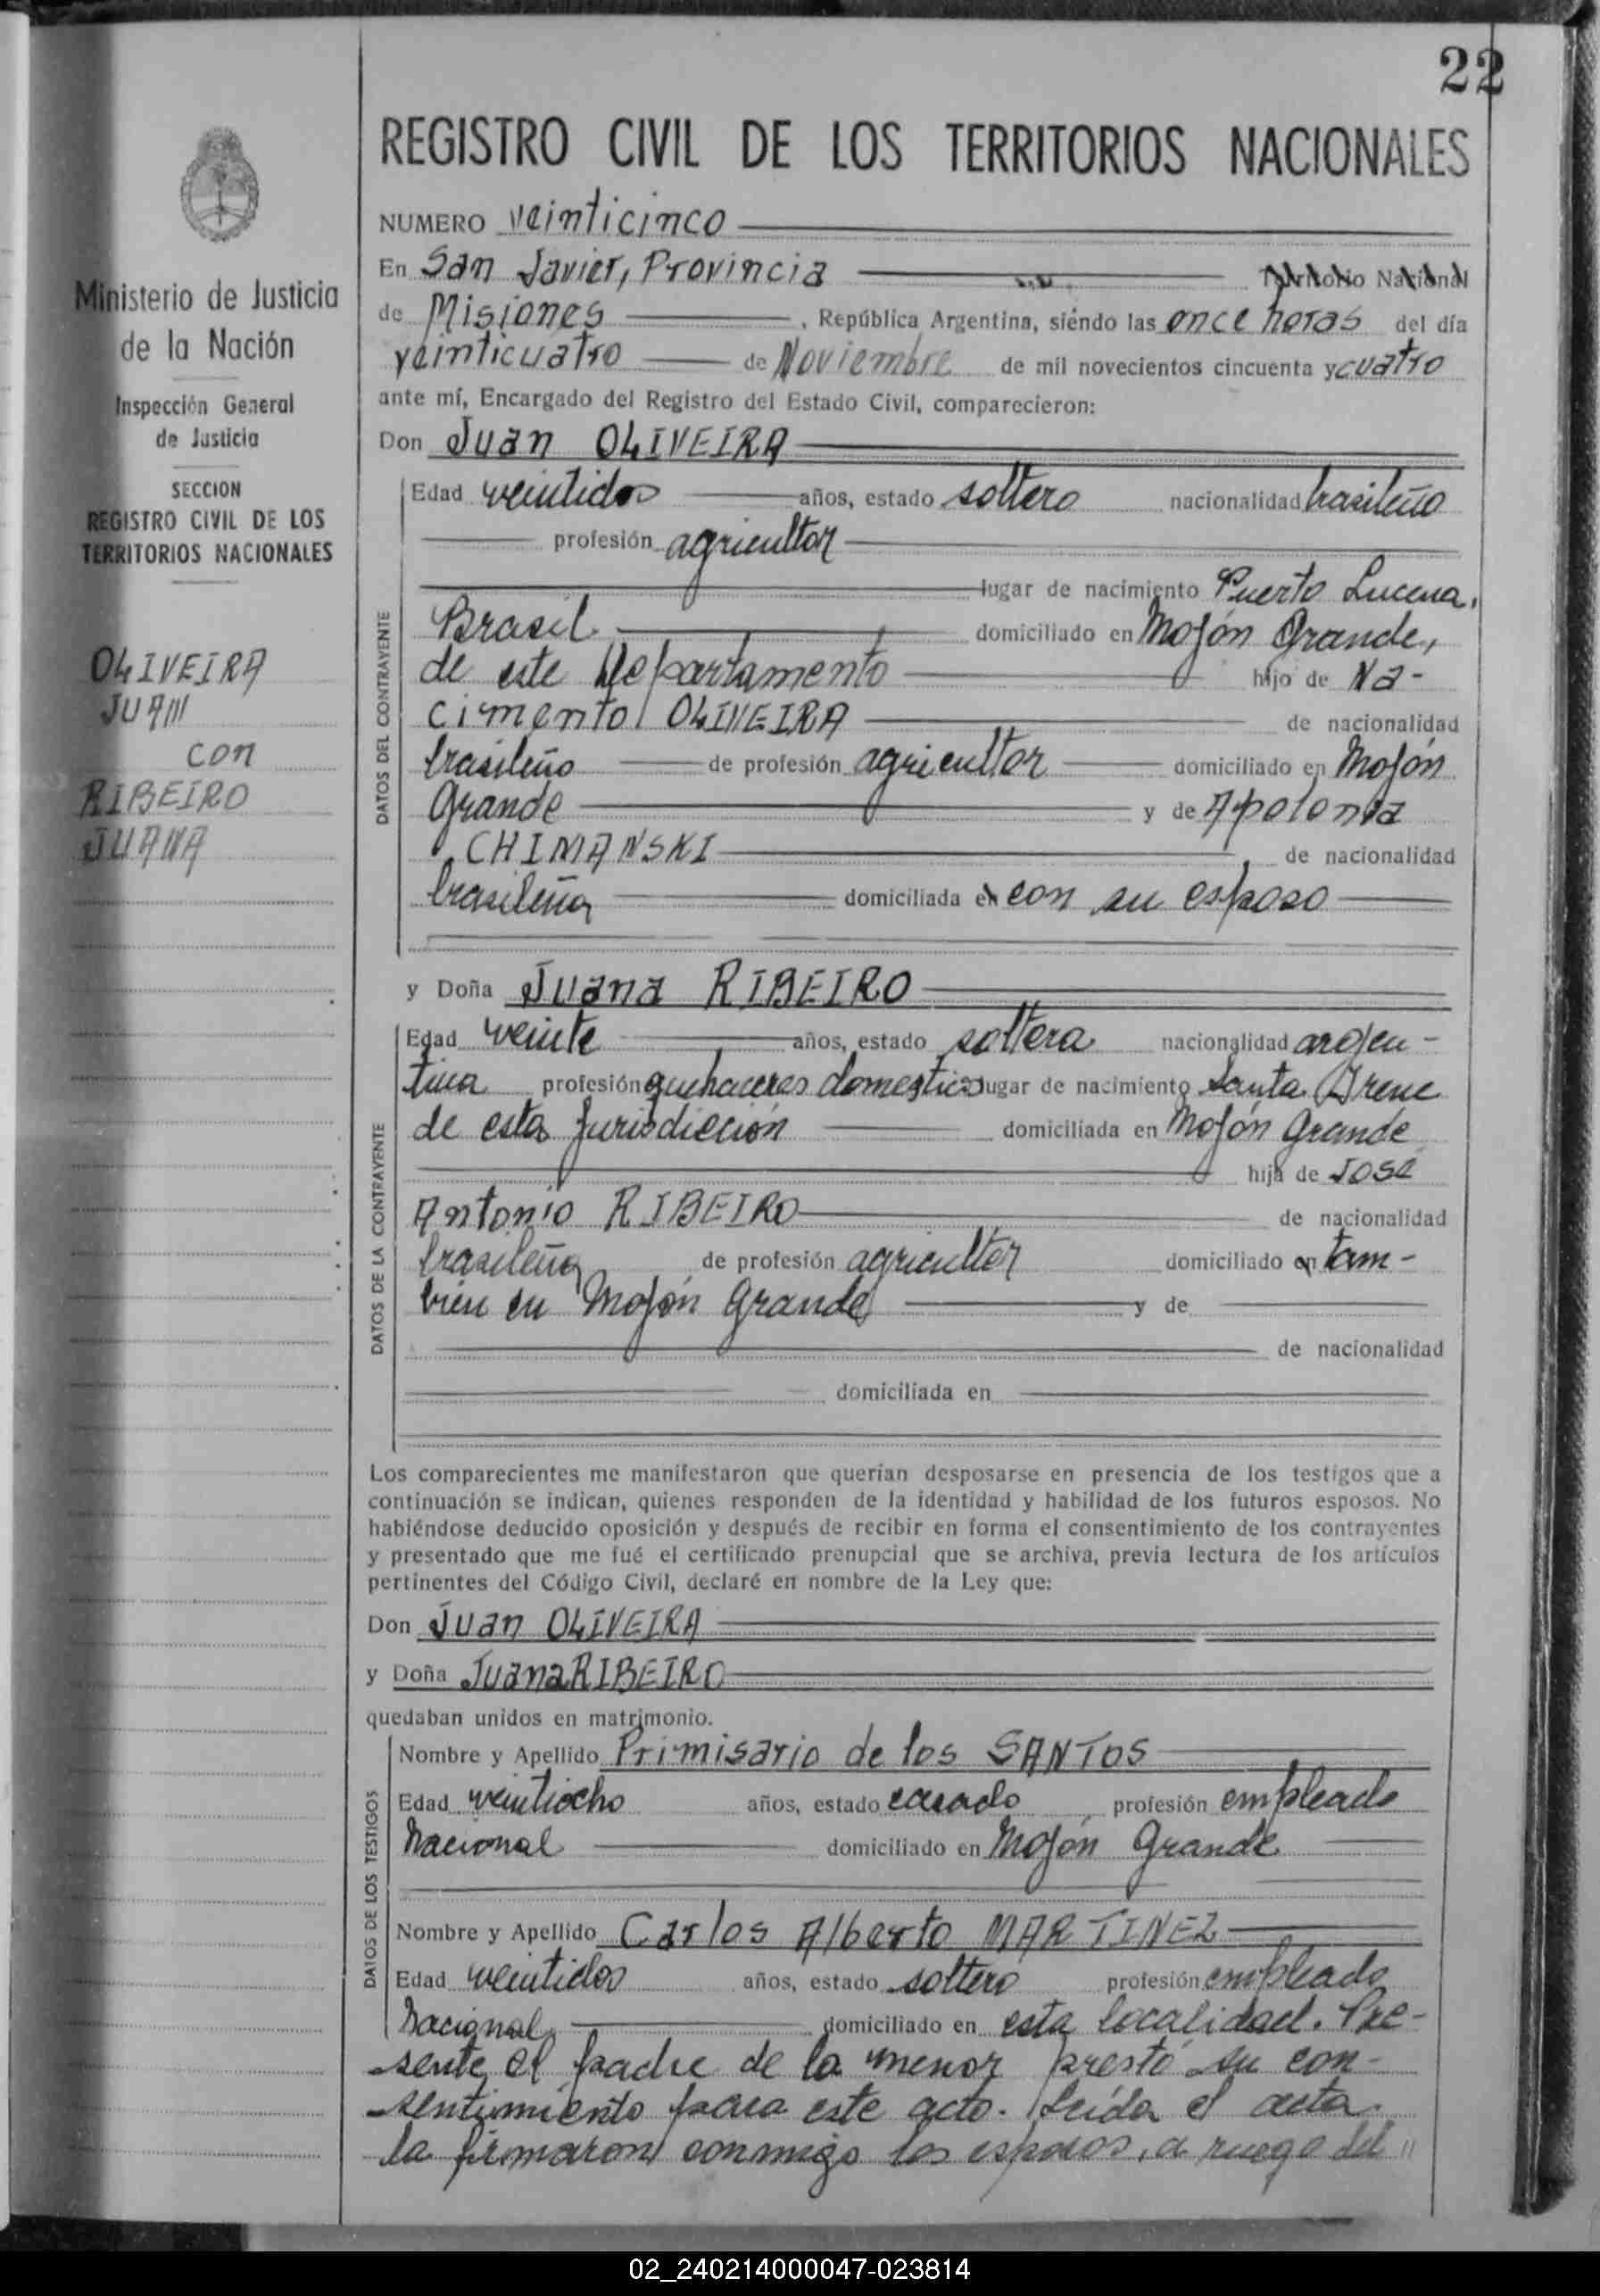 22
Ministerio de Justicia
de la Nación
Inspección General
de Justicia
SECCION
REGISTRO CIVIL DE LOS
TERRITORIOS NACIONALES
OLIVEIRA
JUAN
con
RIBEIRO
JUANA
REGISTRO CIVIL DE LOS TERRITORIOS NACIONALES
NUMERO veinticinco
En San Javier, Provincia Territorio Nacional
de Misiones, República Argentina, siendo las once horas del día
veinticuatro de Noviembre de mil novecientos cincuenta y cuatro
ante mí, Encargado del Registro del Estado Civil, comparecieron:
Don Juan OLIVEIRA
DATOS DEL CONTRAYENTE
Edad veintidos años, estado soltero nacionalidad brasileño
profesión agricultor
lugar de nacimiento Puerto Lucena,
Brasil domiciliado en Mojón Grande,
de este Departamento hijo de Na-
cimento OLIVEIRA de nacionalidad
brasileño de profesión agricultor domiciliado en Mojón
Grande y de Apolonia
CHIMANSKI de nacionalidad
brasileña domiciliada en con su esposo
y Doña Juana RIBEIRO
DATOS DE LA CONTRAYENTE
Edad veinte años, estado soltera nacionalidad argen-
tina profesión quehaceres domesticos lugar de nacimiento Santa Irene
de esta jurisdicción domiciliada en Mojón Grande
hija de José
Antonio RIBEIRO de nacionalidad
brasileña de profesión agricultor domiciliado en tam-
bién en Mojón Grande y de
de nacionalidad
domiciliada en
Los comparecientes me manifestaron que querían desposarse en presencia de los testigos que a
continuación se indican, quienes responden de la identidad y habilidad de los futuros esposos. No
habiéndose deducido oposición y después de recibir en forma el consentimiento de los contrayentes
y presentado que me fué el certificado prenupcial que se archiva, previa lectura de los artículos
pertinentes del Código Civil, declaré en nombre de la Ley que:
Don Juan OLIVEIRA
y Doña Juana RIBEIRO
quedaban unidos en matrimonio.
DATOS DE LOS TESTIGOS
Nombre y Apellido Primisario de los SANTOS
Edad veintiocho años, estado casado profesión empleado
Nacional domiciliado en Mojón Grande
Nombre y Apellido Carlos Alberto MARTINEZ
Edad veintidos años, estado soltero profesión empleado
Nacional domiciliado en esta localidad. Pre-
sente el padre de la menor prestó su con-
sentimiento para este acto. Leída el acta
la firmaron conmigo los esposos, a ruego del "
02_240214000047-023814